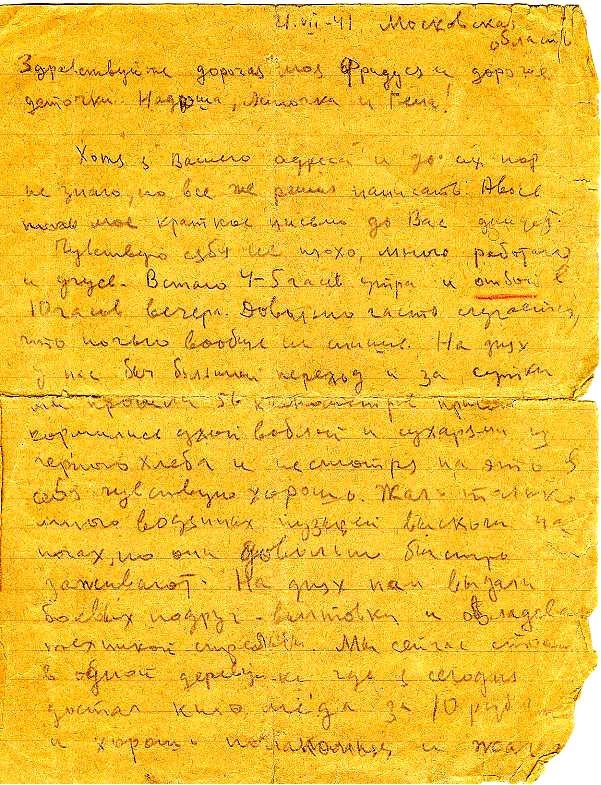 21.VII-41 Московская
область
Здравствуйте дорогая моя Фридуся и дорогие
деточки Надюша, Линочка и Гена!
Хотя я Вашего адреса и до сих пор
не знаю, но все же решил написать. Авось
мое краткое письмо до Вас дойдет.
Чувствую себя не плохо, много работаю
и учусь. Встаю 4-5 часов утра и отбой в
10 часов вечера. Довольно часто случается,
что ночью вообще не спишь. На днях
у нас был большой переход и за сутки
мы прошли 56 километров, причем
кормились одной водой и сухарями из
черного хлеба и несмотря на это я
себя чувствую хорошо. Жаль только
много водяных пузырей выскочили на
ногах, но они довольно быстро
заживают. На днях нам выдали
боевых подруг - винтовки и овладеваем
техникой стрельбы. Мы сейчас стоим
в одной деревушке где я сегодня
достал кило меда за 10 рублей
и хорошо полакомился и жаль